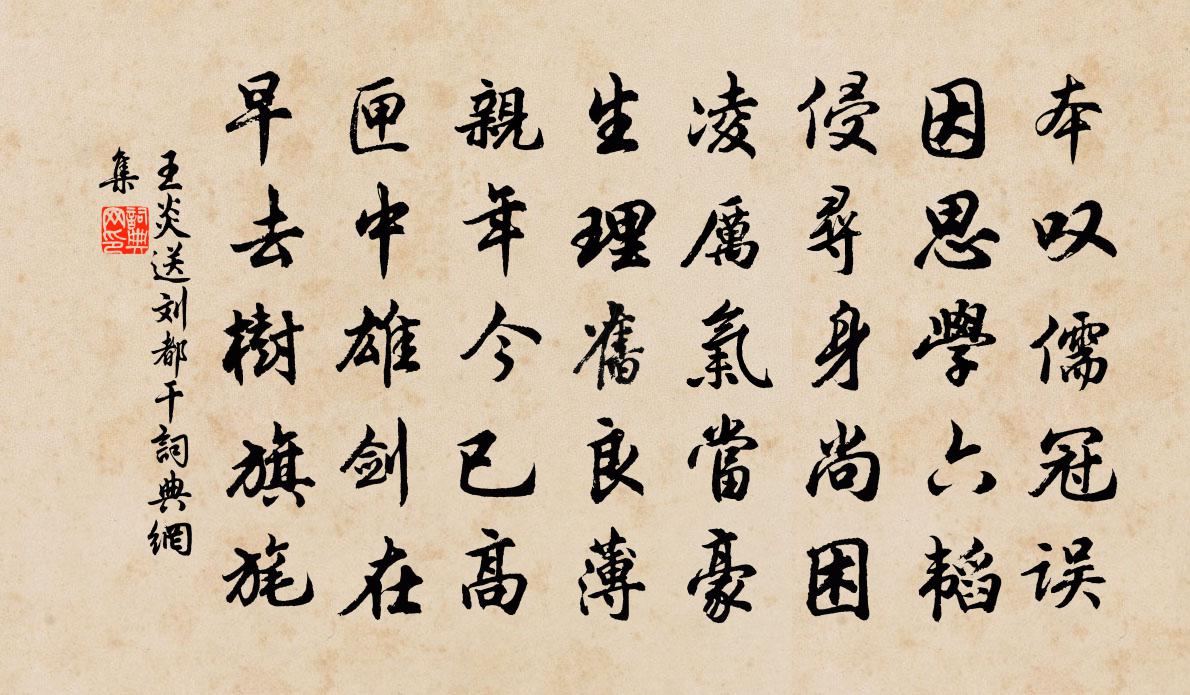 本叹儒冠误
因思學六韬
侵尋身尚困
凌厲氣當豪
生理舊良薄
親年今已高
匣中雄剑在
早去樹旗旄
王炎送刘都干詞典網
集
詞典
网印